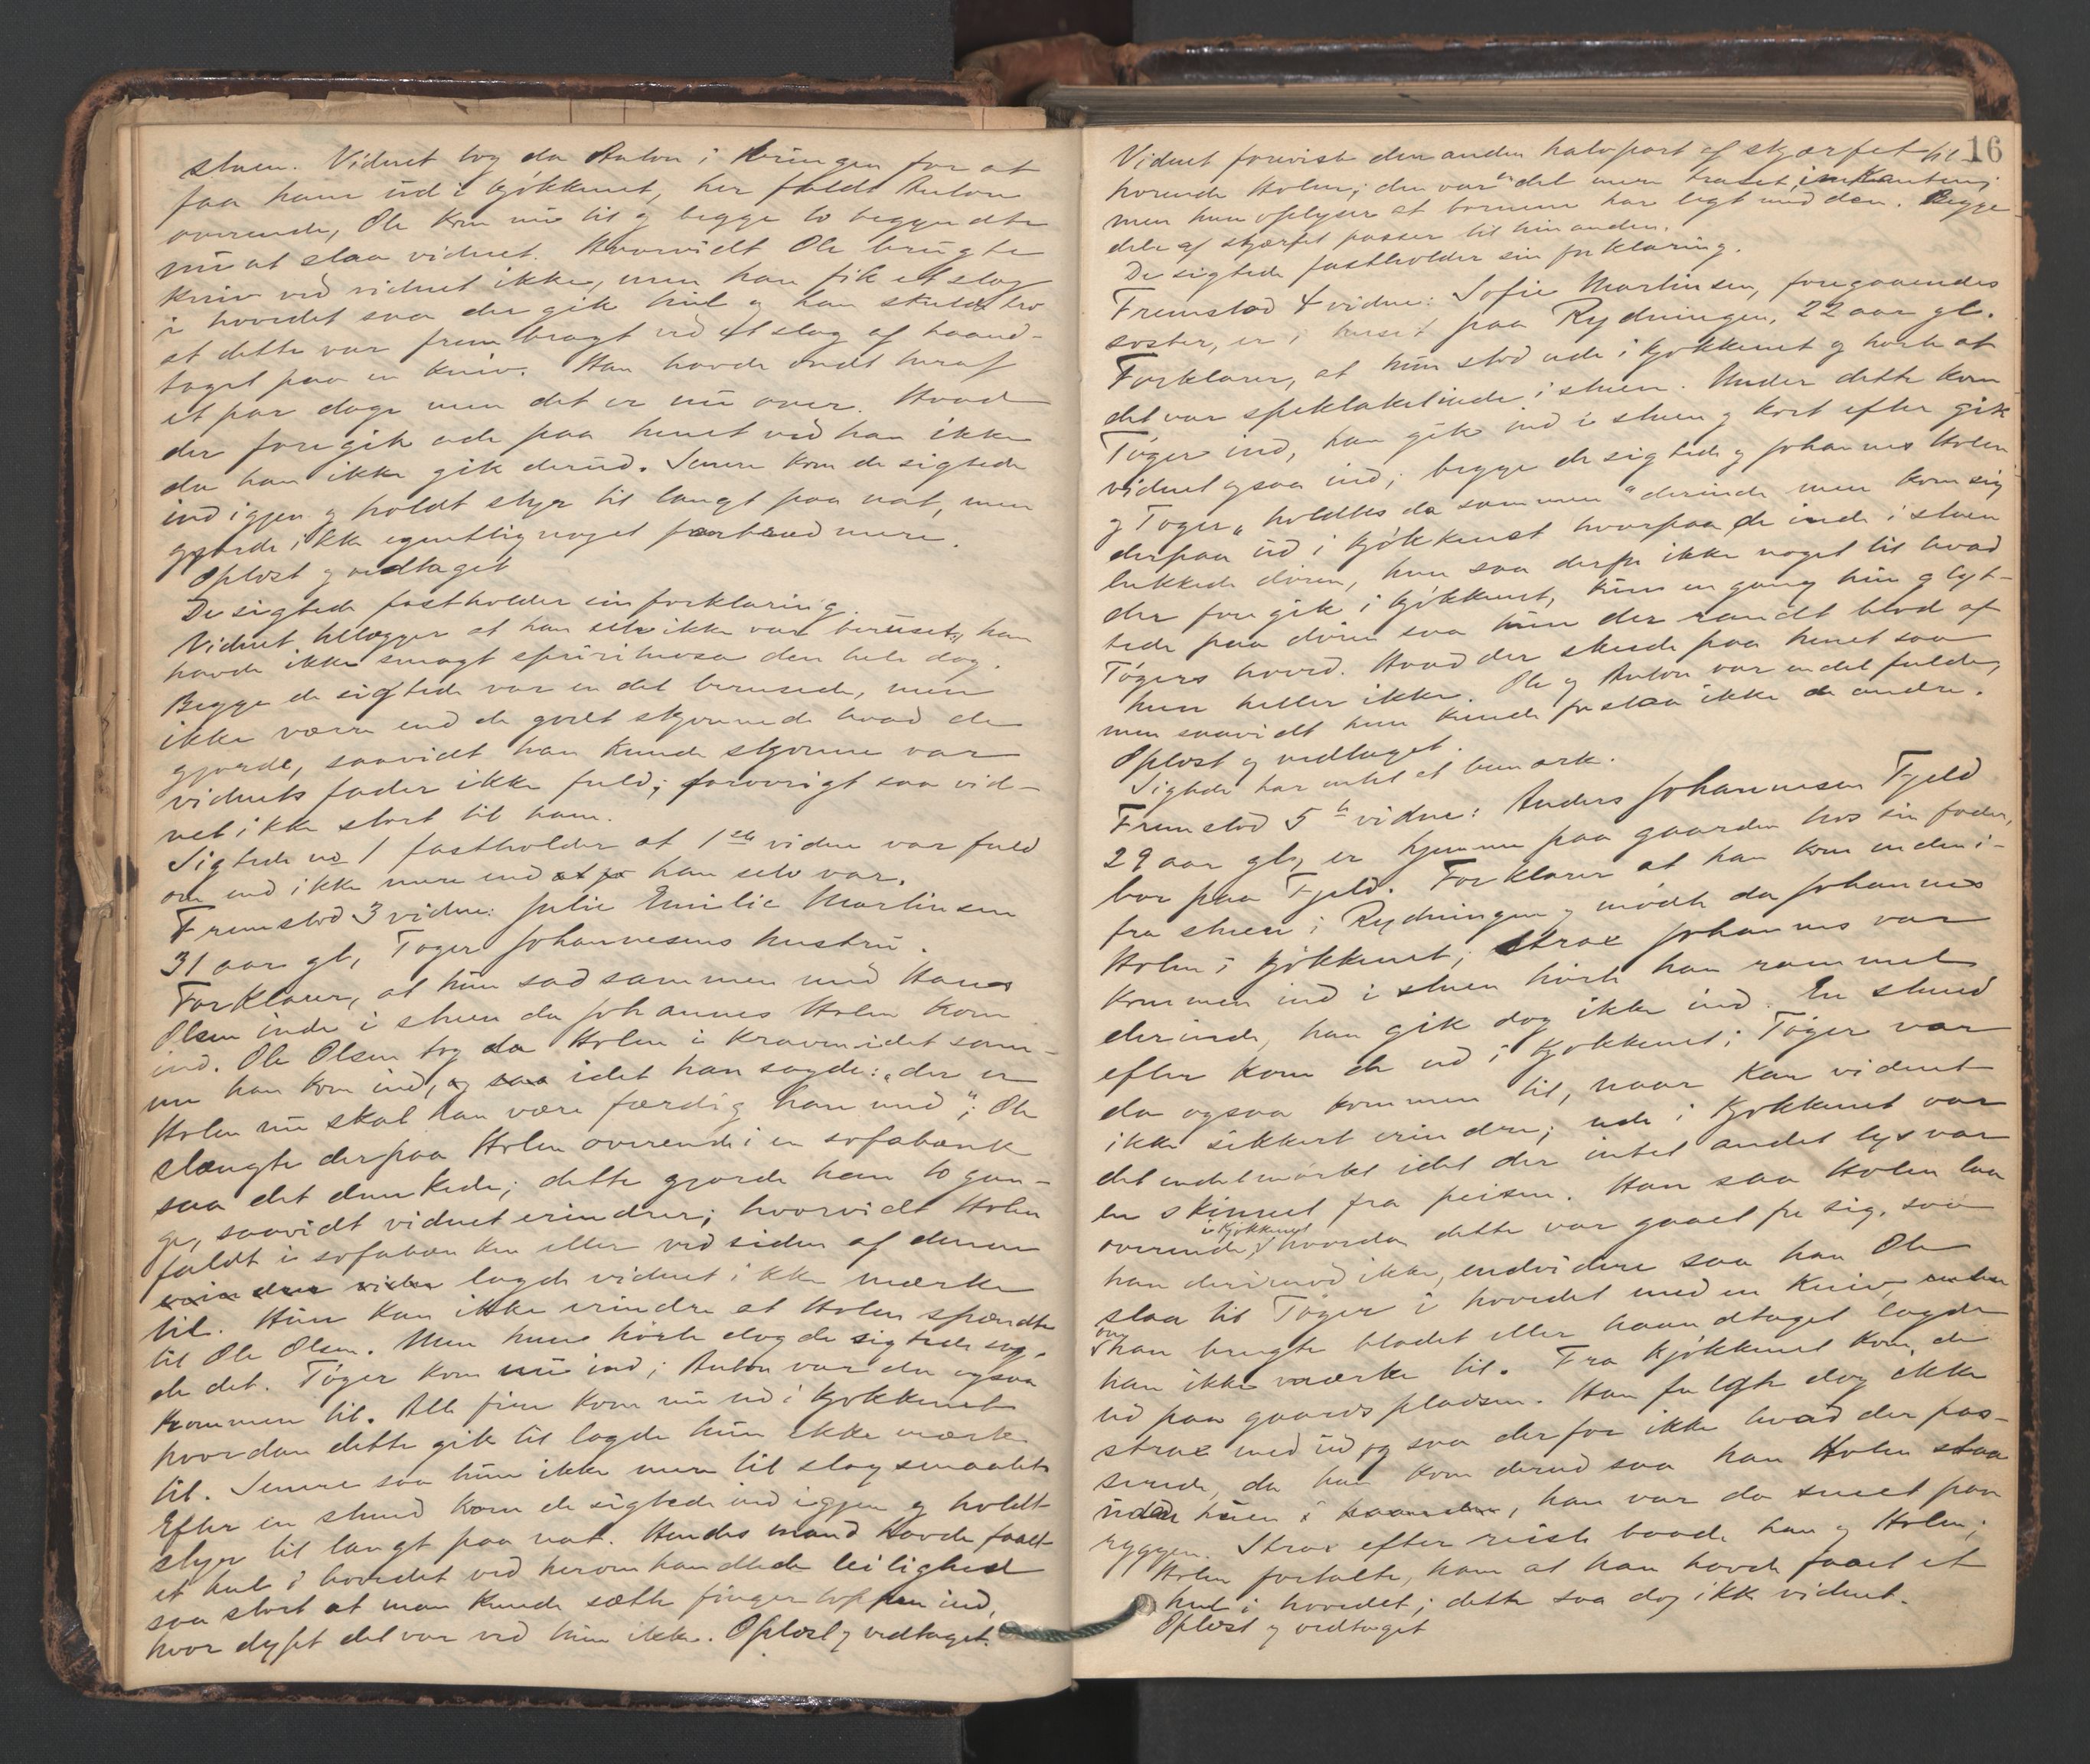 stuen. Vidnet tog da Anton i kringen for at
faa ham ud i kjøkkenet, her faldt Anton
overende, Ole kom nu til og begge to begyndte
nu at slaa vidnet. Hvorvidt Ole brugte
kniv ved vidnet ikke, men han fik et slag
i hovedet saa der gik hul og han skulde tro
at dette var frembragt ved et slag af haand-
taget paa en kniv. Han havde ondt heraf
et par dage men det er nu over. Hvad
der foregik ude paa tunet ved han ikke
da han ikke gik derud. Senere kom de sigtede
ind igjen og holdt styr til langt paa nat, men
gjorde ikke egentlig noget fortræd mere.
Oplæst og vedtaget
De sigtede fastholder sin forklaring.
Vidnet tillægger at han selv ikke var beruset, han
havde ikke smagt spirituosa den hele dag.
Begge de sigtede var en del berusede, men
ikke værre end de godt skjønnede hvad de
gjorde, saavidt han kunde skjønne var
vidnets fader ikke fuld; forøvrigt saa vid-
net ikke stort til ham.
Sigtede no 1 fastholder at 1ste vidne var fuld
om end ikke mere end han selv var.
Fremstod 3 vidne: Julie Emilie Martinsen
31 aar gl, Tøger Johannesens hustru.
Forklarer, at hun sad sammen med Hans
Olsen inde i stuen da Johannes Holen kom
ind. Ole Olsen tog da Holen i kraven idet sam-
me han kom ind, og saa idet han sagde: "der er
Holen nu skal han være færdig han med"; Ole
slængte derpaa Holen overende i en sofabænk
saa det dunkede; dette gjorde han to gan-
ge, saavidt vidnet erindrer; hvorvidt Holen
faldt i sofabænken eller ved siden af denne
erindrer vidne lagde vidnet ikke mærke
til. Hun kan ikke erindre at Holen spændte
til Ole Olsen. Men hun hørte dog de sigtede sag-
de det. Tøger kom nu ind; Anton var da ogsaa
kommen til. Alle fire kom nu ud i kjøkkenet
hvordan dette gik til lagde hun ikke mærke
til. Senere saa hun ikke mere til slagsmaalet
Efter en stund kom de sigtede ind igjen og holdt
styr til langt paa nat. Hendes mand havde faaet
et hul i hovedet ved heromhandlede leilighed
saa stort at man kunde sætte fingertoppen ind,
hvor dybt det var ved hun ikke. Oplæst og vedtaget.
16
Vidnet foreviste den anden halvpart af skjærfet til-
hørende Holen; den var en del mere traset i kanten;
men hun oplyser at børnene har legt med den. Begge
dele af skjærfet passer til hinanden.
De sigtede fastholder sin forklaring.
Fremstod 4 vidne: Sofie Martinsen, foregaaendes
søster, er i huset paa Rydningen, 22 aar gl.
Forklarer, at hun stod ude i kjøkkenet og hørte at
det var spektakel inde i stuen. Under dette kom
Tøger ind, han gik ind i stuen og kort efter gik
vidnet ogsaa ind; begge de sigtede og Johannes Holen
og Tøger "holdtes da sammen" derinde men kom sig
derpaa ud i kjøkkenet hvorpaa de inde i stuen
lukkede døren, hun saa derfor ikke noget til hvad
der foregik i kjøkkenet, kun en gang hun glyt-
tede paa døren saa hun der randt blod af
Tøgers hoved. Hvad der skede paa tunet saa
hun heller ikke. Ole og Anton var endel fulde,
men saavidt hun kunde forstaa ikke de andre.
Oplæst og vedtaget.
Sigtede har intet at bemærke.
Fremstod 5te vidne: Anders Johannesen Fjeld
29 aar gl, er hjemme paa gaarden hos sin fader,
bor paa Fjeld. Forklarer at han kom inden i-
fra stuen i Rydningen og mødte da Johannes
Holen i kjøkkenet; strax Johannes var
kommen ind i stuen hørte han rammel
derinde, han gik dog ikke ind. En stund
efter kom de ud i kjøkkenet; Tøger var
da ogsaa kommen til, naar kan vidnet
ikke sikkert erindre; ude i kjøkkenet var
det endel mørkt idet der intet andet lys var
en skinnet fra peisen. Han saa Holen laa
overende i kjøkkenet hvordan dette var gaaet for sig, saa
han derimod ikke, endvidere saa han Ole
slaa til Tøger i hovedet med en kniv, enten
om han brugte bladet eller haandtaget lagde
han ikke mærke til. Fra kjøkkenet kom de
ud paa gaardspladsen. Han fulgte dog ikke
strax med ud og saa derfor ikke hvad der pas-
serede, da han kom derud saa han Holen staa
uden huen i haanden, han var da sneet paa
ryggen. Strax efter reiste baade han og Holen;
Holen fortalte, ham at han havde faaet et
hul i hovedet; dette saa dog ikke vidnet.
Oplæst og vedtaget